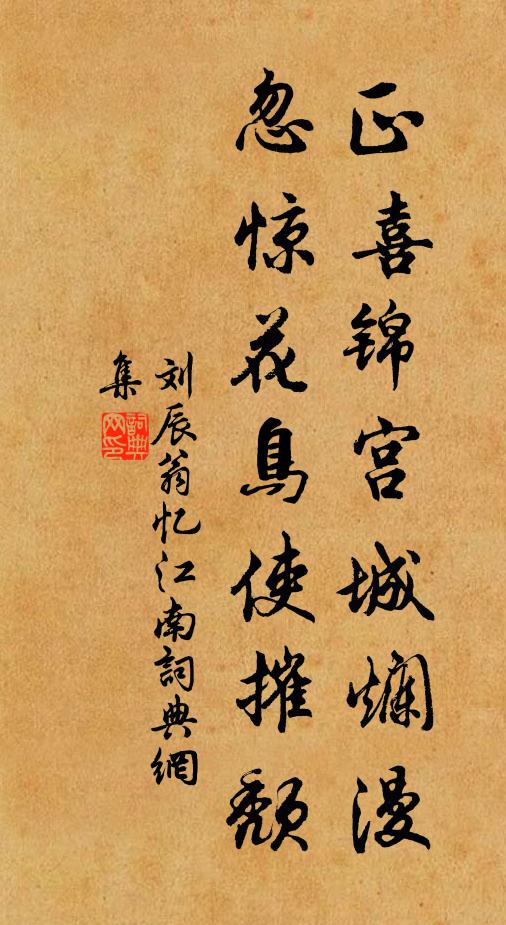 正喜锦宫城烂漫
忽惊花鸟使摧颓
刘辰翁忆江南詞典網
集
詞典网印